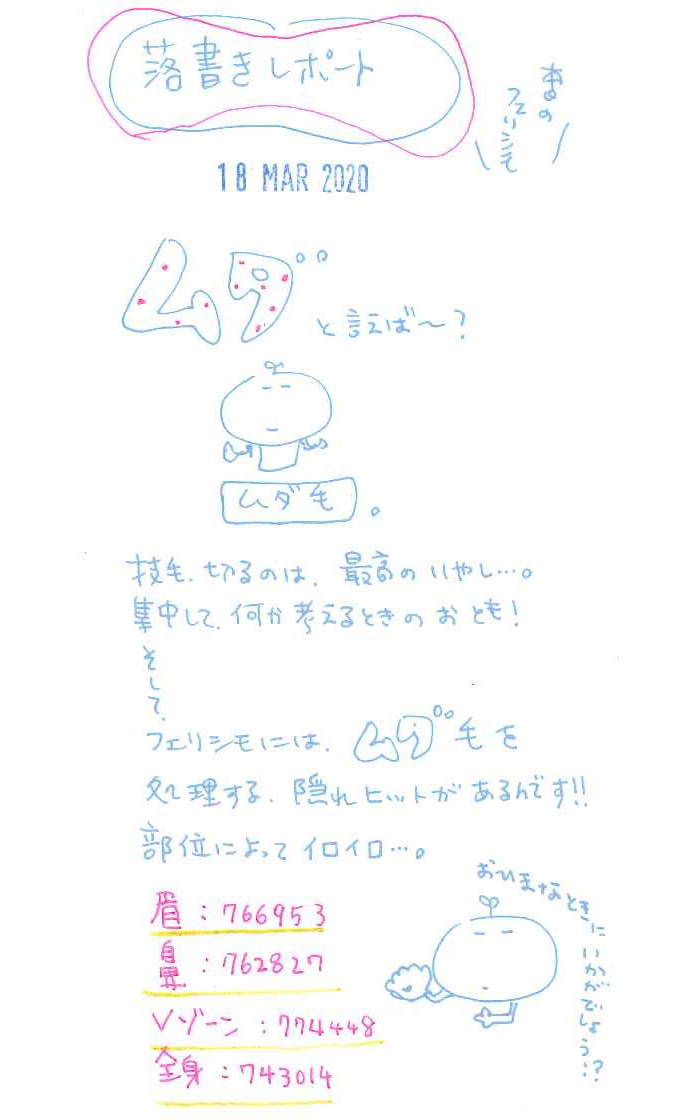 落書きレポート
あの
フェリシモ
18 MAR 2020
ムダ
と言えば〜?
ムダ毛。
枝毛、切るのは、最高のいやし…。
集中して、何か考えるときのおとも!
そして、
フェリシモには、ムダ毛を
処理する、隠れヒットがあるんです!!
部位によってイロイロ…。
眉:766953
鼻:762827
Vゾーン:774448
全身:743014
おひまなときにいかがでしょう!?